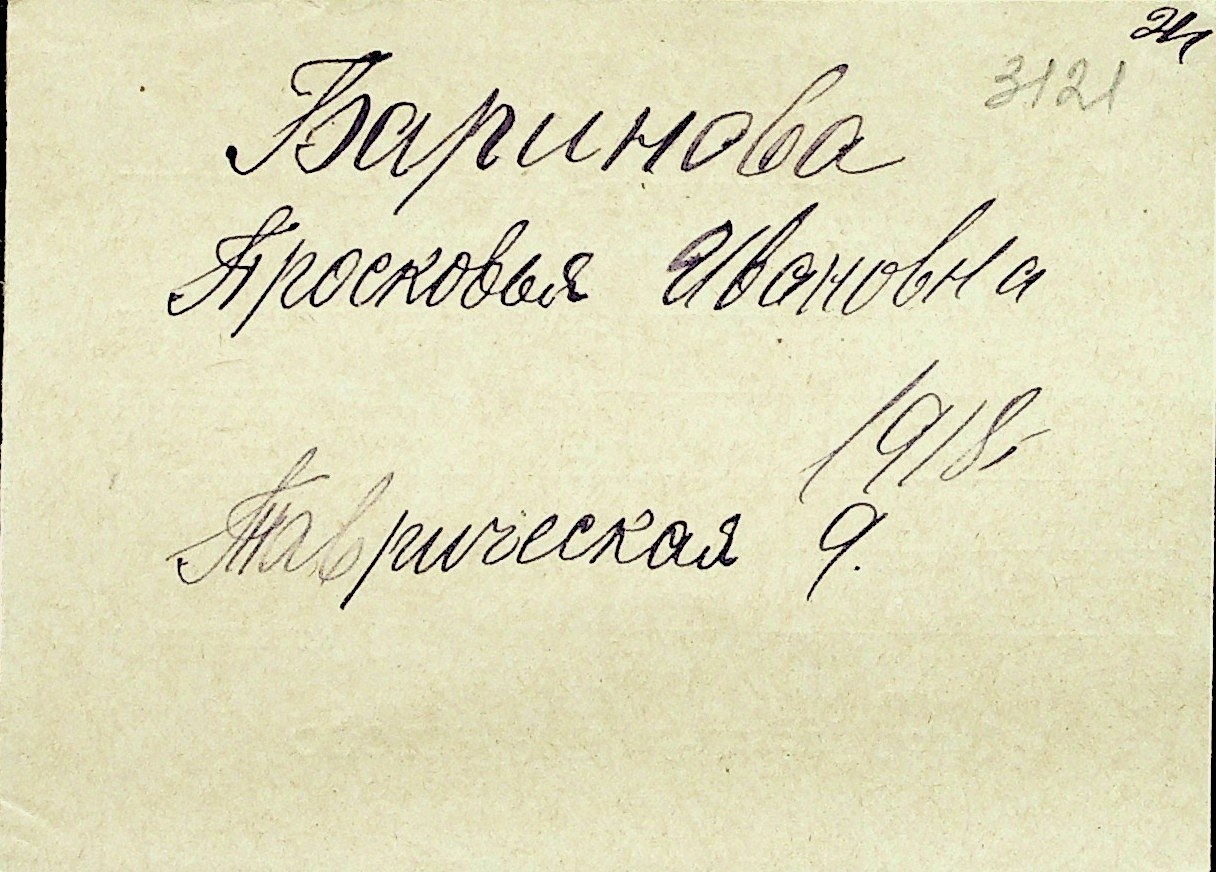 3121
Баринова
Просковья Ивановна
1918г
Таврическая 9.